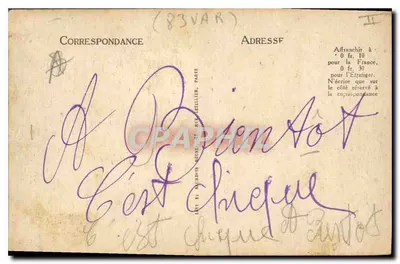 (83 VAR)
II
CORRESPONDANCE
ADRESSE
Affranchir à
0 fr. 10
pour la France,
0 fr. 30
pour l'Étranger.
N'écrire que sur
le côté réservé à
la correspondance
A Bientôt
C'est chique
C'est chique A